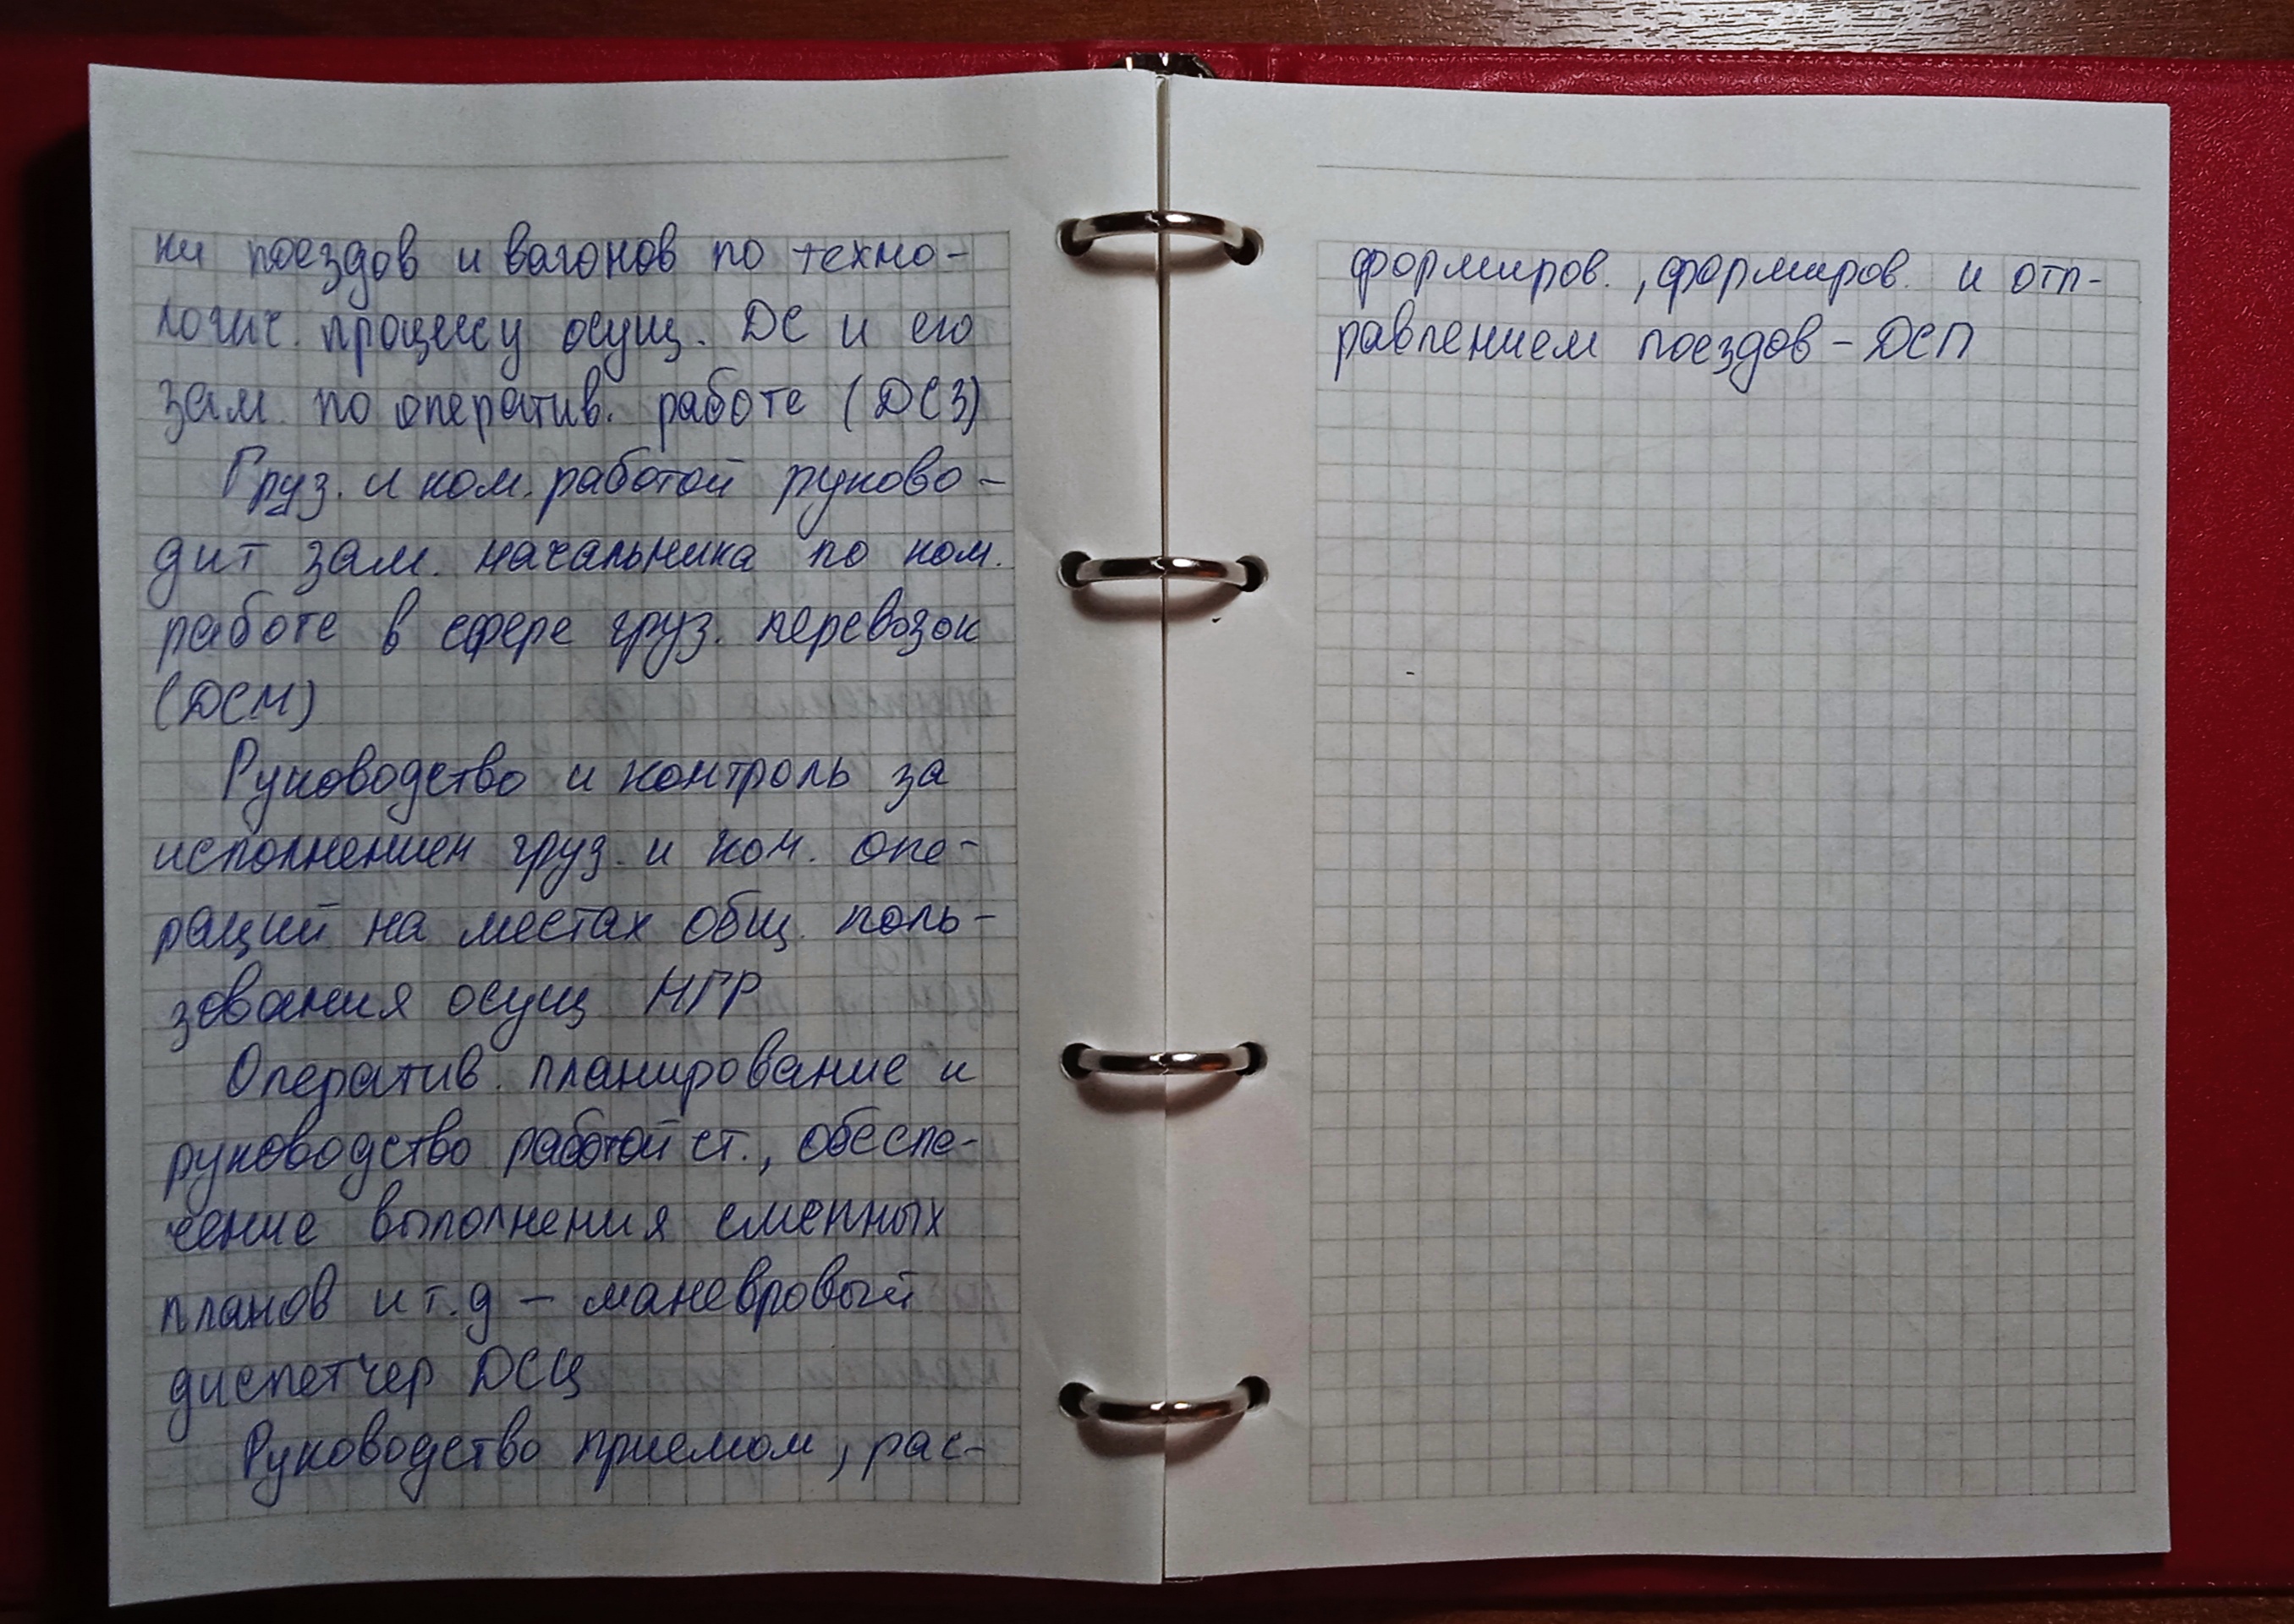 ки поездов и вагонов по техно-
логич. процессу осущ. ДС и его
зам. по оператив. работе (ДСЗ)
Груз. и ком. работой руково-
дит зам. начальника по ком.
работе в сфере груз. перевозок
(ДСМ)
Руководство и контроль за
исполнением груз. и ком. опе-
раций на местах общ. поль-
зования осущ НГР
Оператив. планирование и
руководство работой ст., обеспе-
чение выполнения сменных
планов и т.д – маневровый
диспетчер ДСЦ
Руководство приемом, рас-
формиров., формиров. и отп-
равлением поездов – ДСП